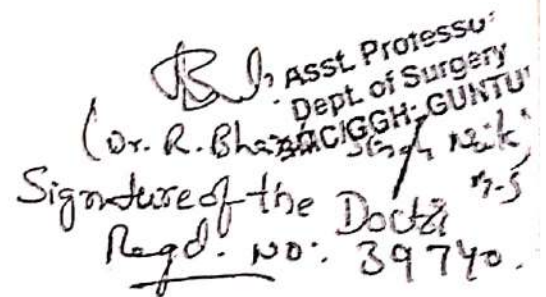 Asst. Professo
Dept. of Surgery
GGH-GUNTU
(Dr. R. Naik
Signature of the Doctor
Regd. NO: 39740.